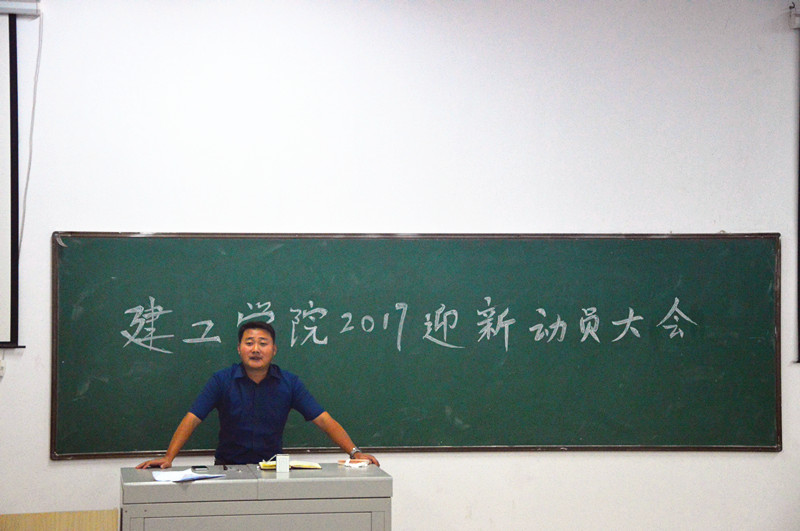 建工学院2017迎新动员大会